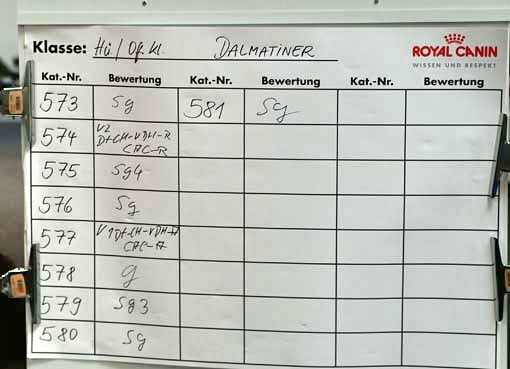 Klasse: Hü./Of. Kl. DALMATINER
ROYAL CANIN
WISSEN UND RESPEKT
Kat.-Nr. Bewertung Kat.-Nr. Bewertung Kat.-Nr. Bewertung
573 Sg 581 Sg
574 V2
Dt-CH-VDH-R
CAC-R
575 Sg4
576 Sg
577 V1 Dt-CH-VDH-A
CAC-A
578 g
579 Sg3
580 Sg